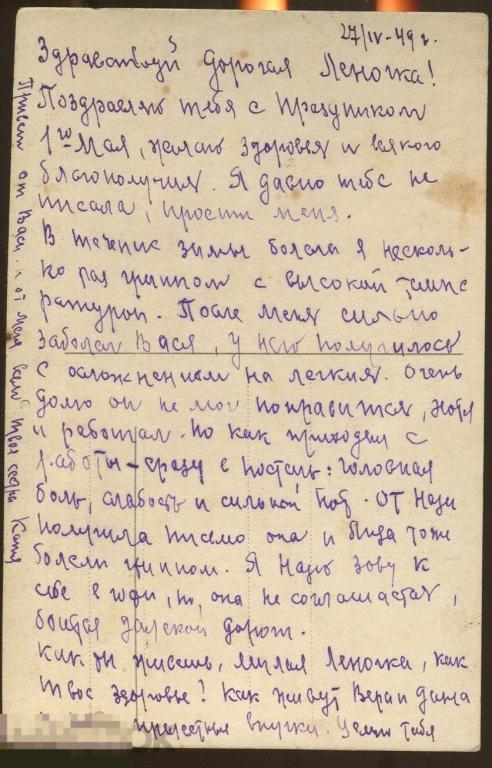 27/IV-49 г.
Здравствуй Дорогая Леночка!
Поздравляю тебя с праздником
1го Мая, желаю здоровья и всякого
благополучия. Я давно тебе не
писала, прости меня.
В течение зимы болела я несколь-
ко раз гриппом с высокой темпе
ратурой. После меня сильно
заболел Вася, у него получилось
с осложнением на легкия. Очень
долго он не мог поправится, хотя
и работал. Но как приходил с
работы-сразу в постель: головная
боль, слабость и сильный пот. От Нади
получила письмо она и тоже
болели гриппом. Я Надю зову к
себе в гости, но, она не соглашается,
боится далекой дороги.
Как ты живешь, милая Леночка, как
твое здоровье? Как живут Вера и Дима
прелестные внучки. Целую тебя
Привет от Васи. твоя сестра Катя